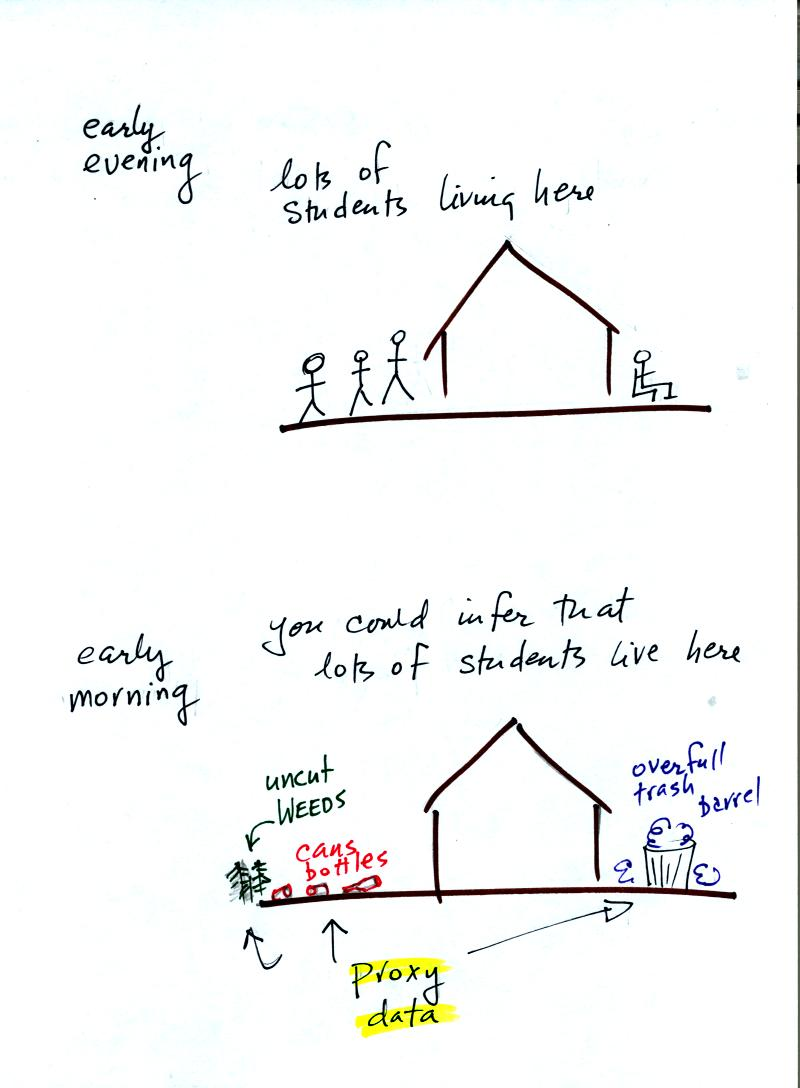 early
evening
lots of
students living here
you could infer that
lots of students live here
early
morning
uncut
WEEDS
cans
bottles
overfull
trash
barrel
Proxy
data